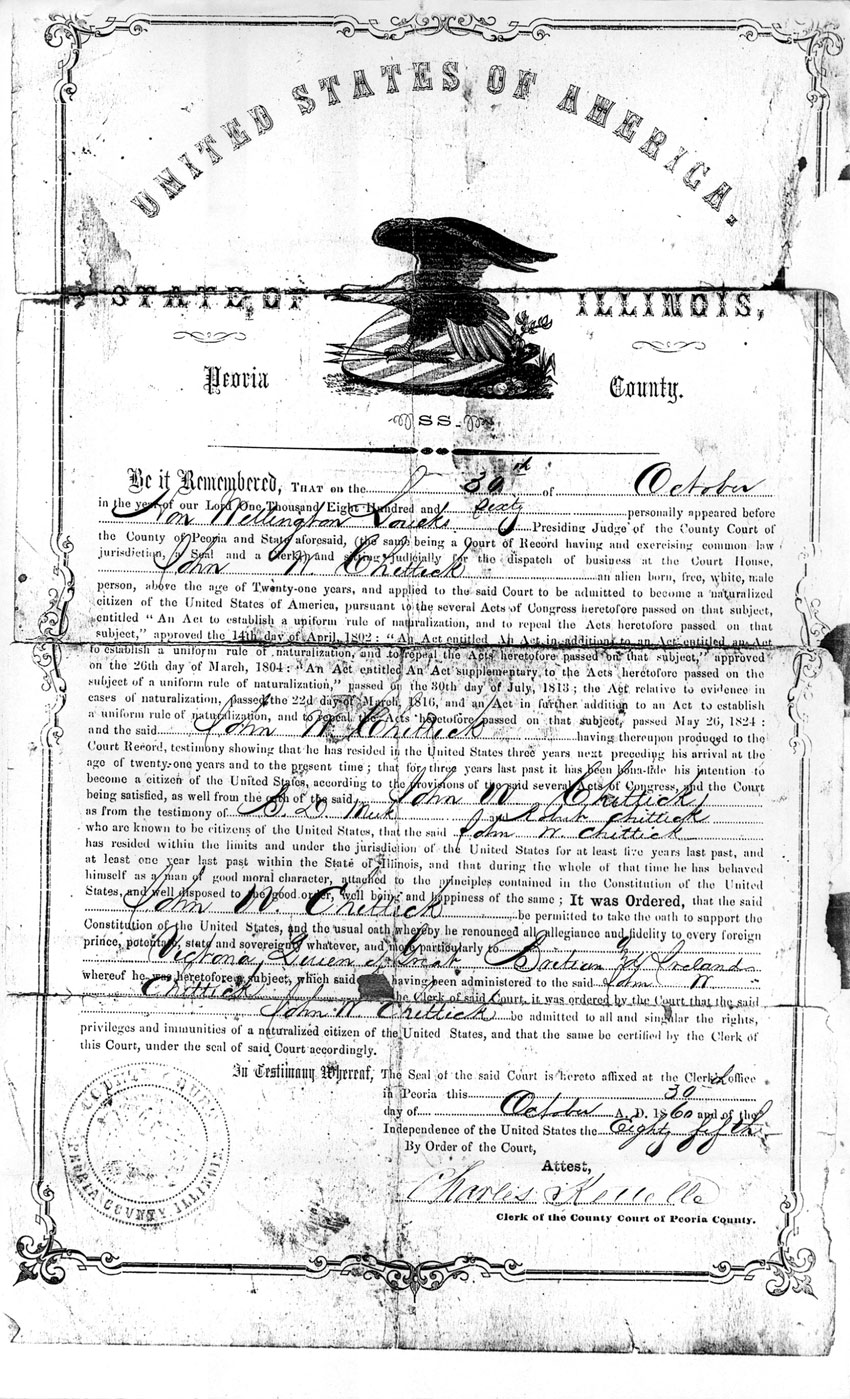 UNITED STATES OF AMERICA.
STATE OF ILLINOIS,
Peoria County.
SS.
Be it Remembered, THAT ON the 30th of October
in the year of our Lord One Thousand Eight Hundred and Sixty personally appeared before
Hon Wellington Loucks Presiding Judge of the County Court of
the County of Peoria and State aforesaid, (the same being a Court of Record having and exercising common law
jurisdiction, a Seal and a Clerk) and sitting judicially for the dispatch of business at the Court House,
John W. Chittick an alien born, free, white, male
person, above the age of Twenty-one years, and applied to the said Court to be admitted to become a naturalized
citizen of the United States of America, pursuant to the several Acts of Congress heretofore passed on that subject,
entitled "An Act to establish a uniform rule of naturalization, and to repeal the Acts heretofore passed on that
subject," approved the 14th day of April, 1802: "An Act entitled An Act in addition to an Act entitled an Act
to establish a uniform rule of naturalization, and to repeal the Acts heretofore passed on that subject," approved
on the 26th day of March, 1804: "An Act entitled An Act supplementary to the Acts heretofore passed on the
subject of a uniform rule of naturalization," passed on the 30th day of July, 1813; the Act relative to evidence in
cases of naturalization, passed the 22d day of March, 1816, and an Act in further addition to an Act to establish
a uniform rule of naturalization, and to repeal the Acts heretofore passed on that subject, passed May 26, 1824:
and the said John W Chittick having thereupon produced to the
Court Record, testimony showing that he has resided in the United States three years next preceding his arrival at the
age of twenty-one years and to the present time; that for three years last past it has been bona-fide his intention to
become a citizen of the United States, according to the provisions of the said several Acts of Congress, and the Court
being satisfied, as well from the oath of the said John W Chittick
as from the testimony of B. D. Meek Robert Chittick
who are known to be citizens of the United States, that the said John W. Chittick
has resided within the limits and under the jurisdiction of the United States for at least five years last past, and
at least one year last past within the State of Illinois, and that during the whole of that time he has behaved
himself as a man of good moral character, attached to the principles contained in the Constitution of the United
States, and well disposed to the good order, well being and happiness of the same; It was Ordered, that the said
John W. Chittick be permitted to take the oath to support the
Constitution of the United States, and the usual oath whereby he renounced all allegiance and fidelity to every foreign
prince, potentate, state and sovereignty whatever, and more particularly to
Victoria Queen of Great Britian & Ireland
whereof he was heretofore a subject, which said having been administered to the said John W
Chittick the Clerk of said Court, it was ordered by the Court that the said
John W Chittick be admitted to all and singular the rights,
privileges and immunities of a naturalized citizen of the United States, and that the same be certified by the Clerk of
this Court, under the seal of said Court accordingly.
In Testimony Whereof, The Seal of the said Court is hereto affixed at the Clerk's office
in Peoria this 30
day of October A. D. 1860 and of the
Independence of the United States the Eighty fifth
By Order of the Court,
Attest,
Charles Kettelle
Clerk of the County Court of Peoria County.
COUNTY COURT
PEORIA COUNTY ILLINOIS